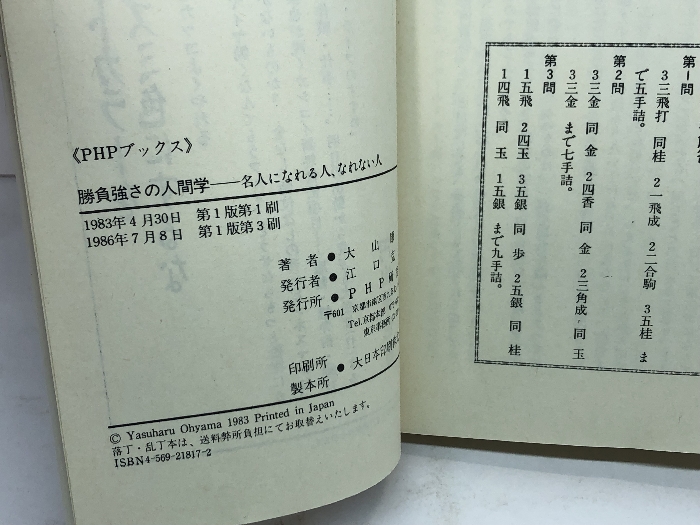 《PHPブックス》
勝負強さの人間学——名人になれる人、なれない人
1983年4月30日 第1版第1刷
1986年7月8日 第1版第3刷
著者●大山
発行者●江口
発行所●PHP
〒601 京都市南区
Tel.京都本部
東京事務所
印刷所
製本所
●大日本印刷株
© Yasuharu Ohyama 1983 Printed in Japan
落丁・乱丁本は、送料弊所負担にてお取替えいたします。
ISBN4-569-21817-2
第1問
3三飛打 同桂 2一飛成 2二合駒 3五桂 ま
で五手詰。
第2問
3三金 同金 2四香 同金 2三角成 同玉
3三金 まで七手詰。
第3問
1五飛 2四玉 3五銀 同歩 2五銀 同桂
1四飛 同玉 1五銀 まで九手詰。